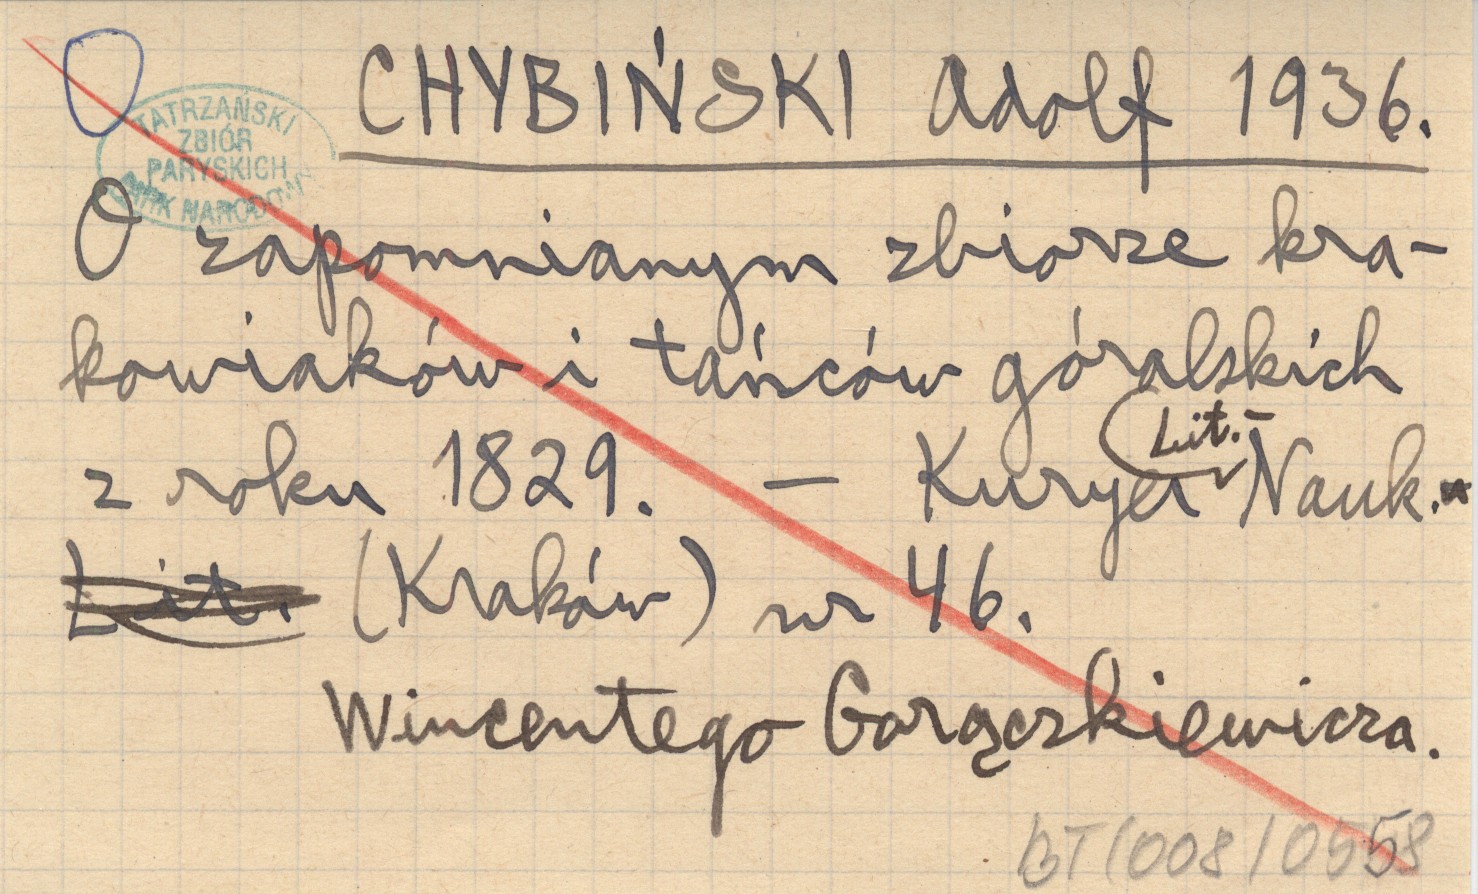 CHYBIŃSKI Adolf 1936.
TATRZAŃSKI
ZBIÓR
PARYSKICH
PARK NARODOWY
O zapomnianym zbiorze kra-
kowiaków i tańców góralskich
z roku 1829. — Kuryer Lit.- Nauk.
Lit. (Kraków) nr 46.
Wincentego Gorączkiewicza.
BT/008/0558